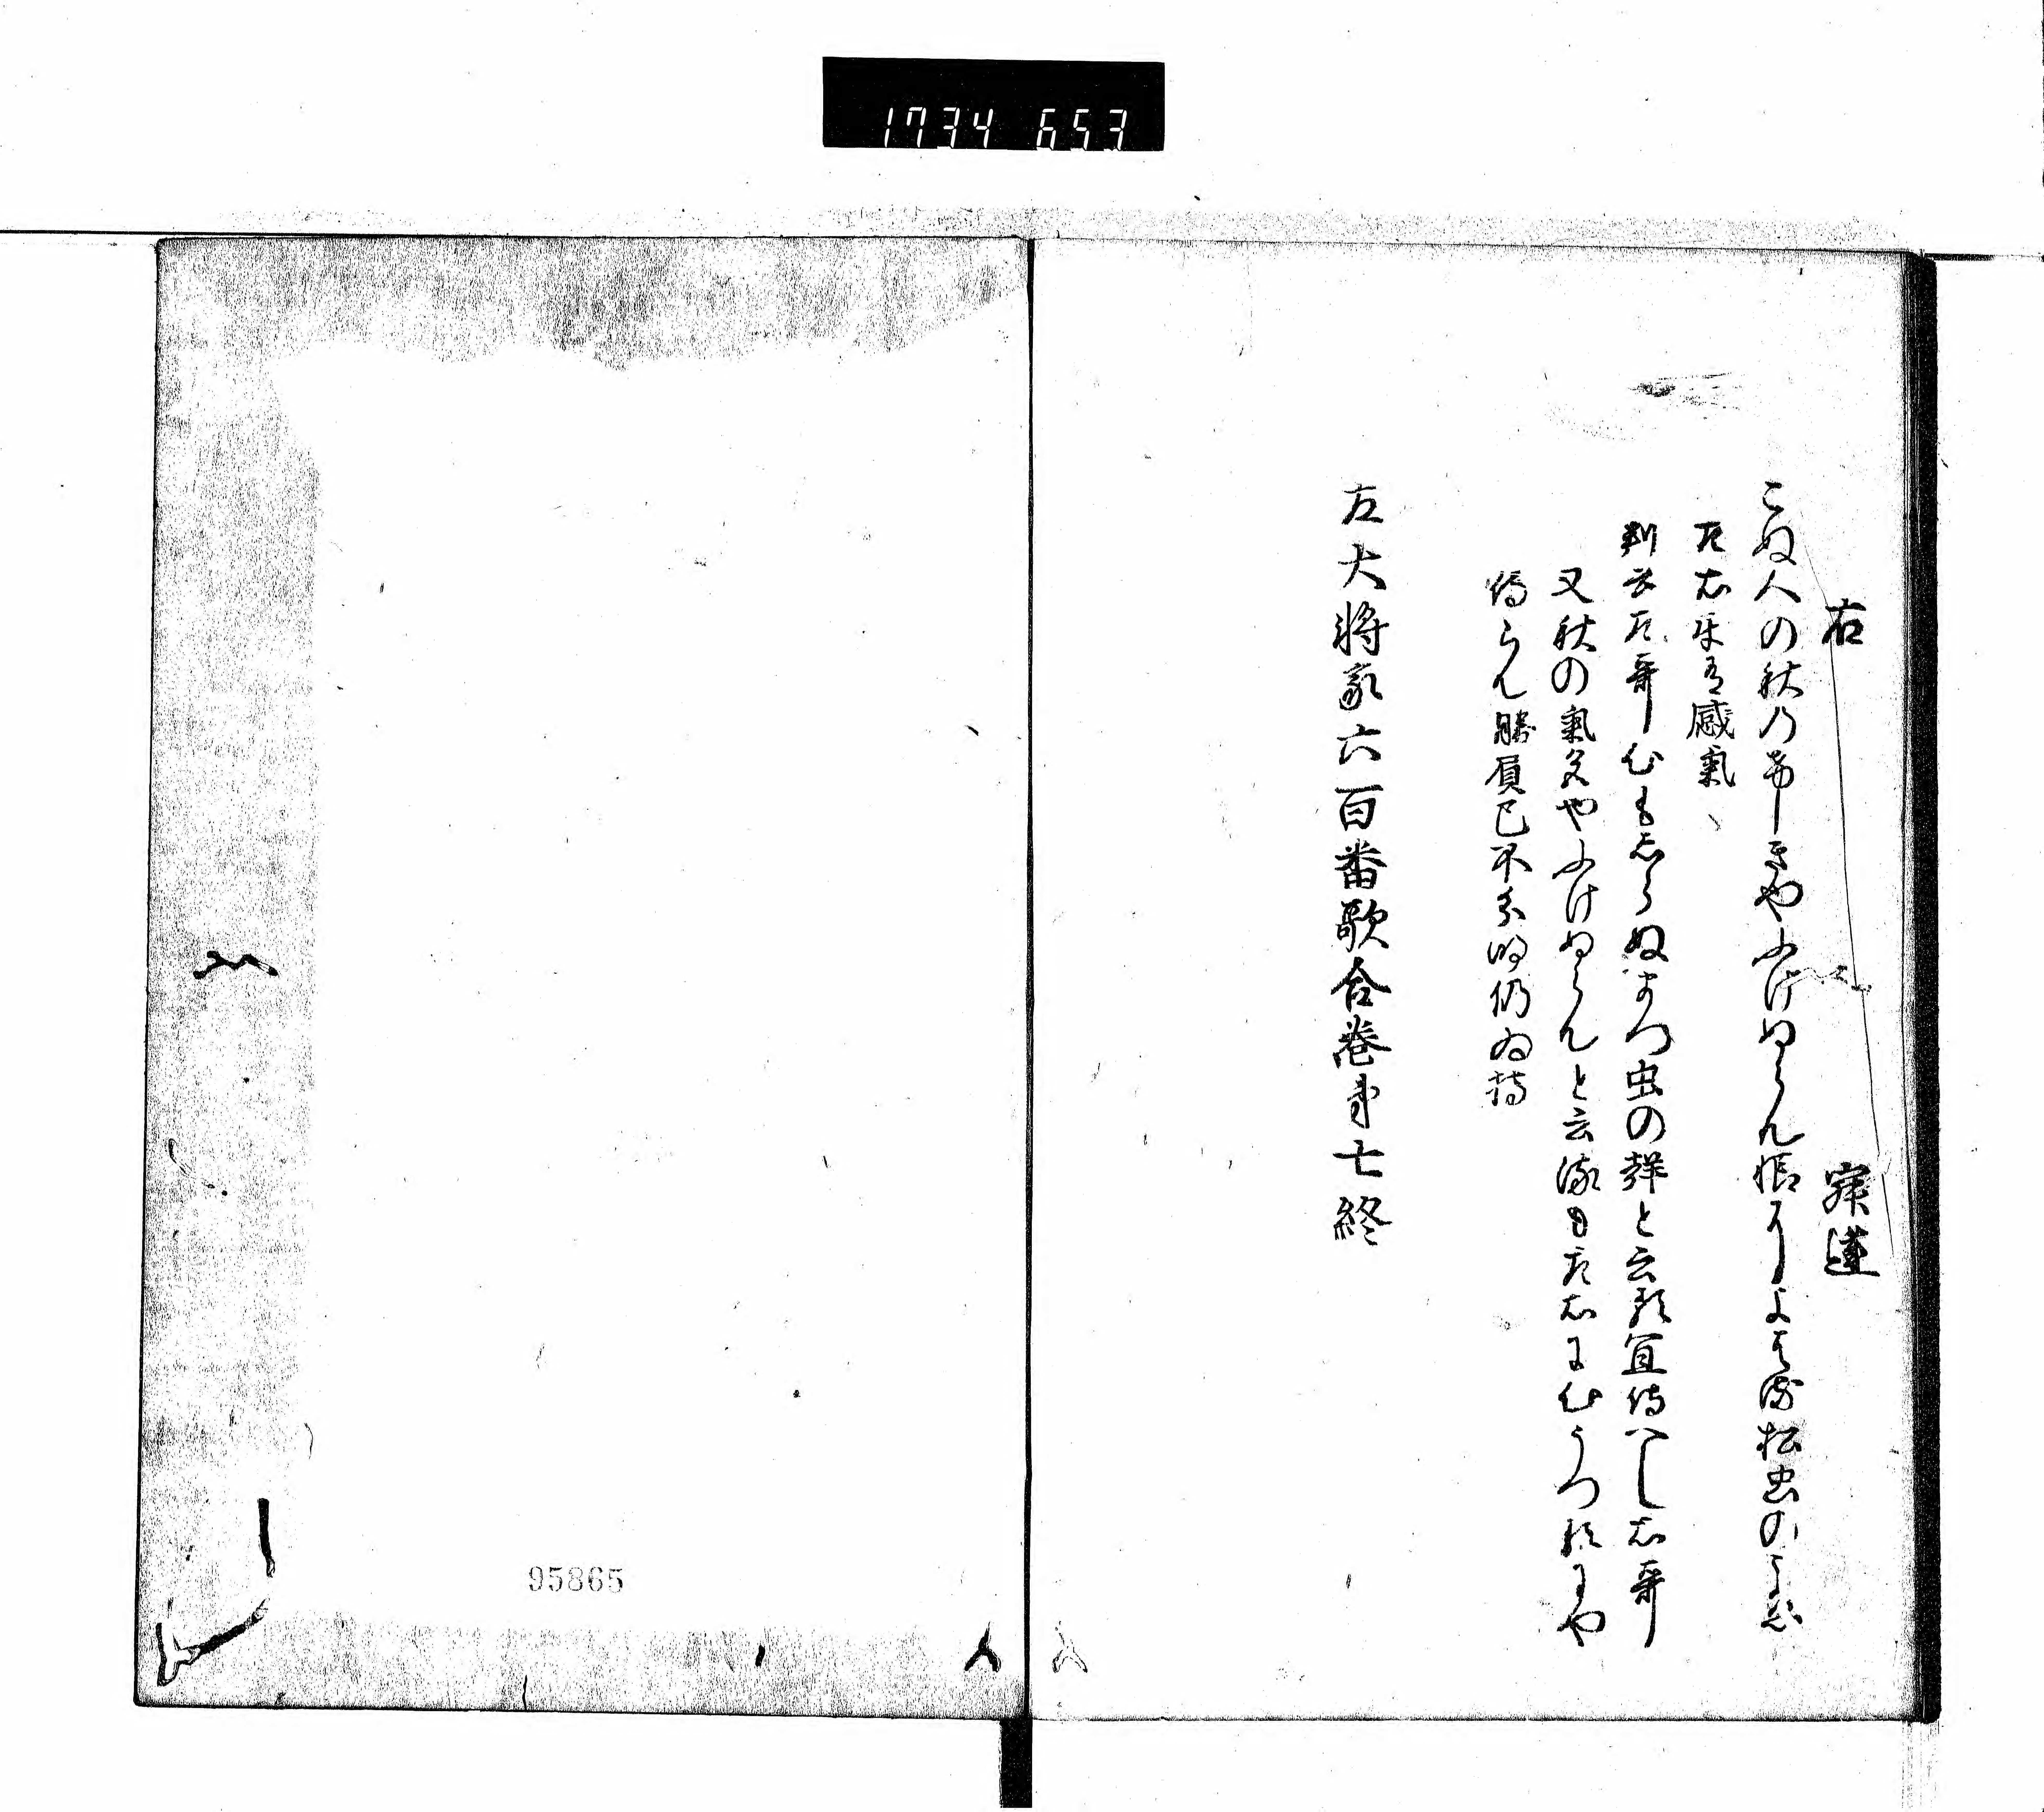 1734 653
右 寂蓮
こぬ人の秋のけしきやふけぬらん恨によはる松虫のこゑ
左右共有感氣
判云左哥心もしらぬまつ虫の聲と云殊宜侍へし右哥
又秋の氣色やふけぬらんと云波も左右に心うつ殊にや
侍らん勝負已不分明仍為持
左大将家六百番歌合巻第七終
95865